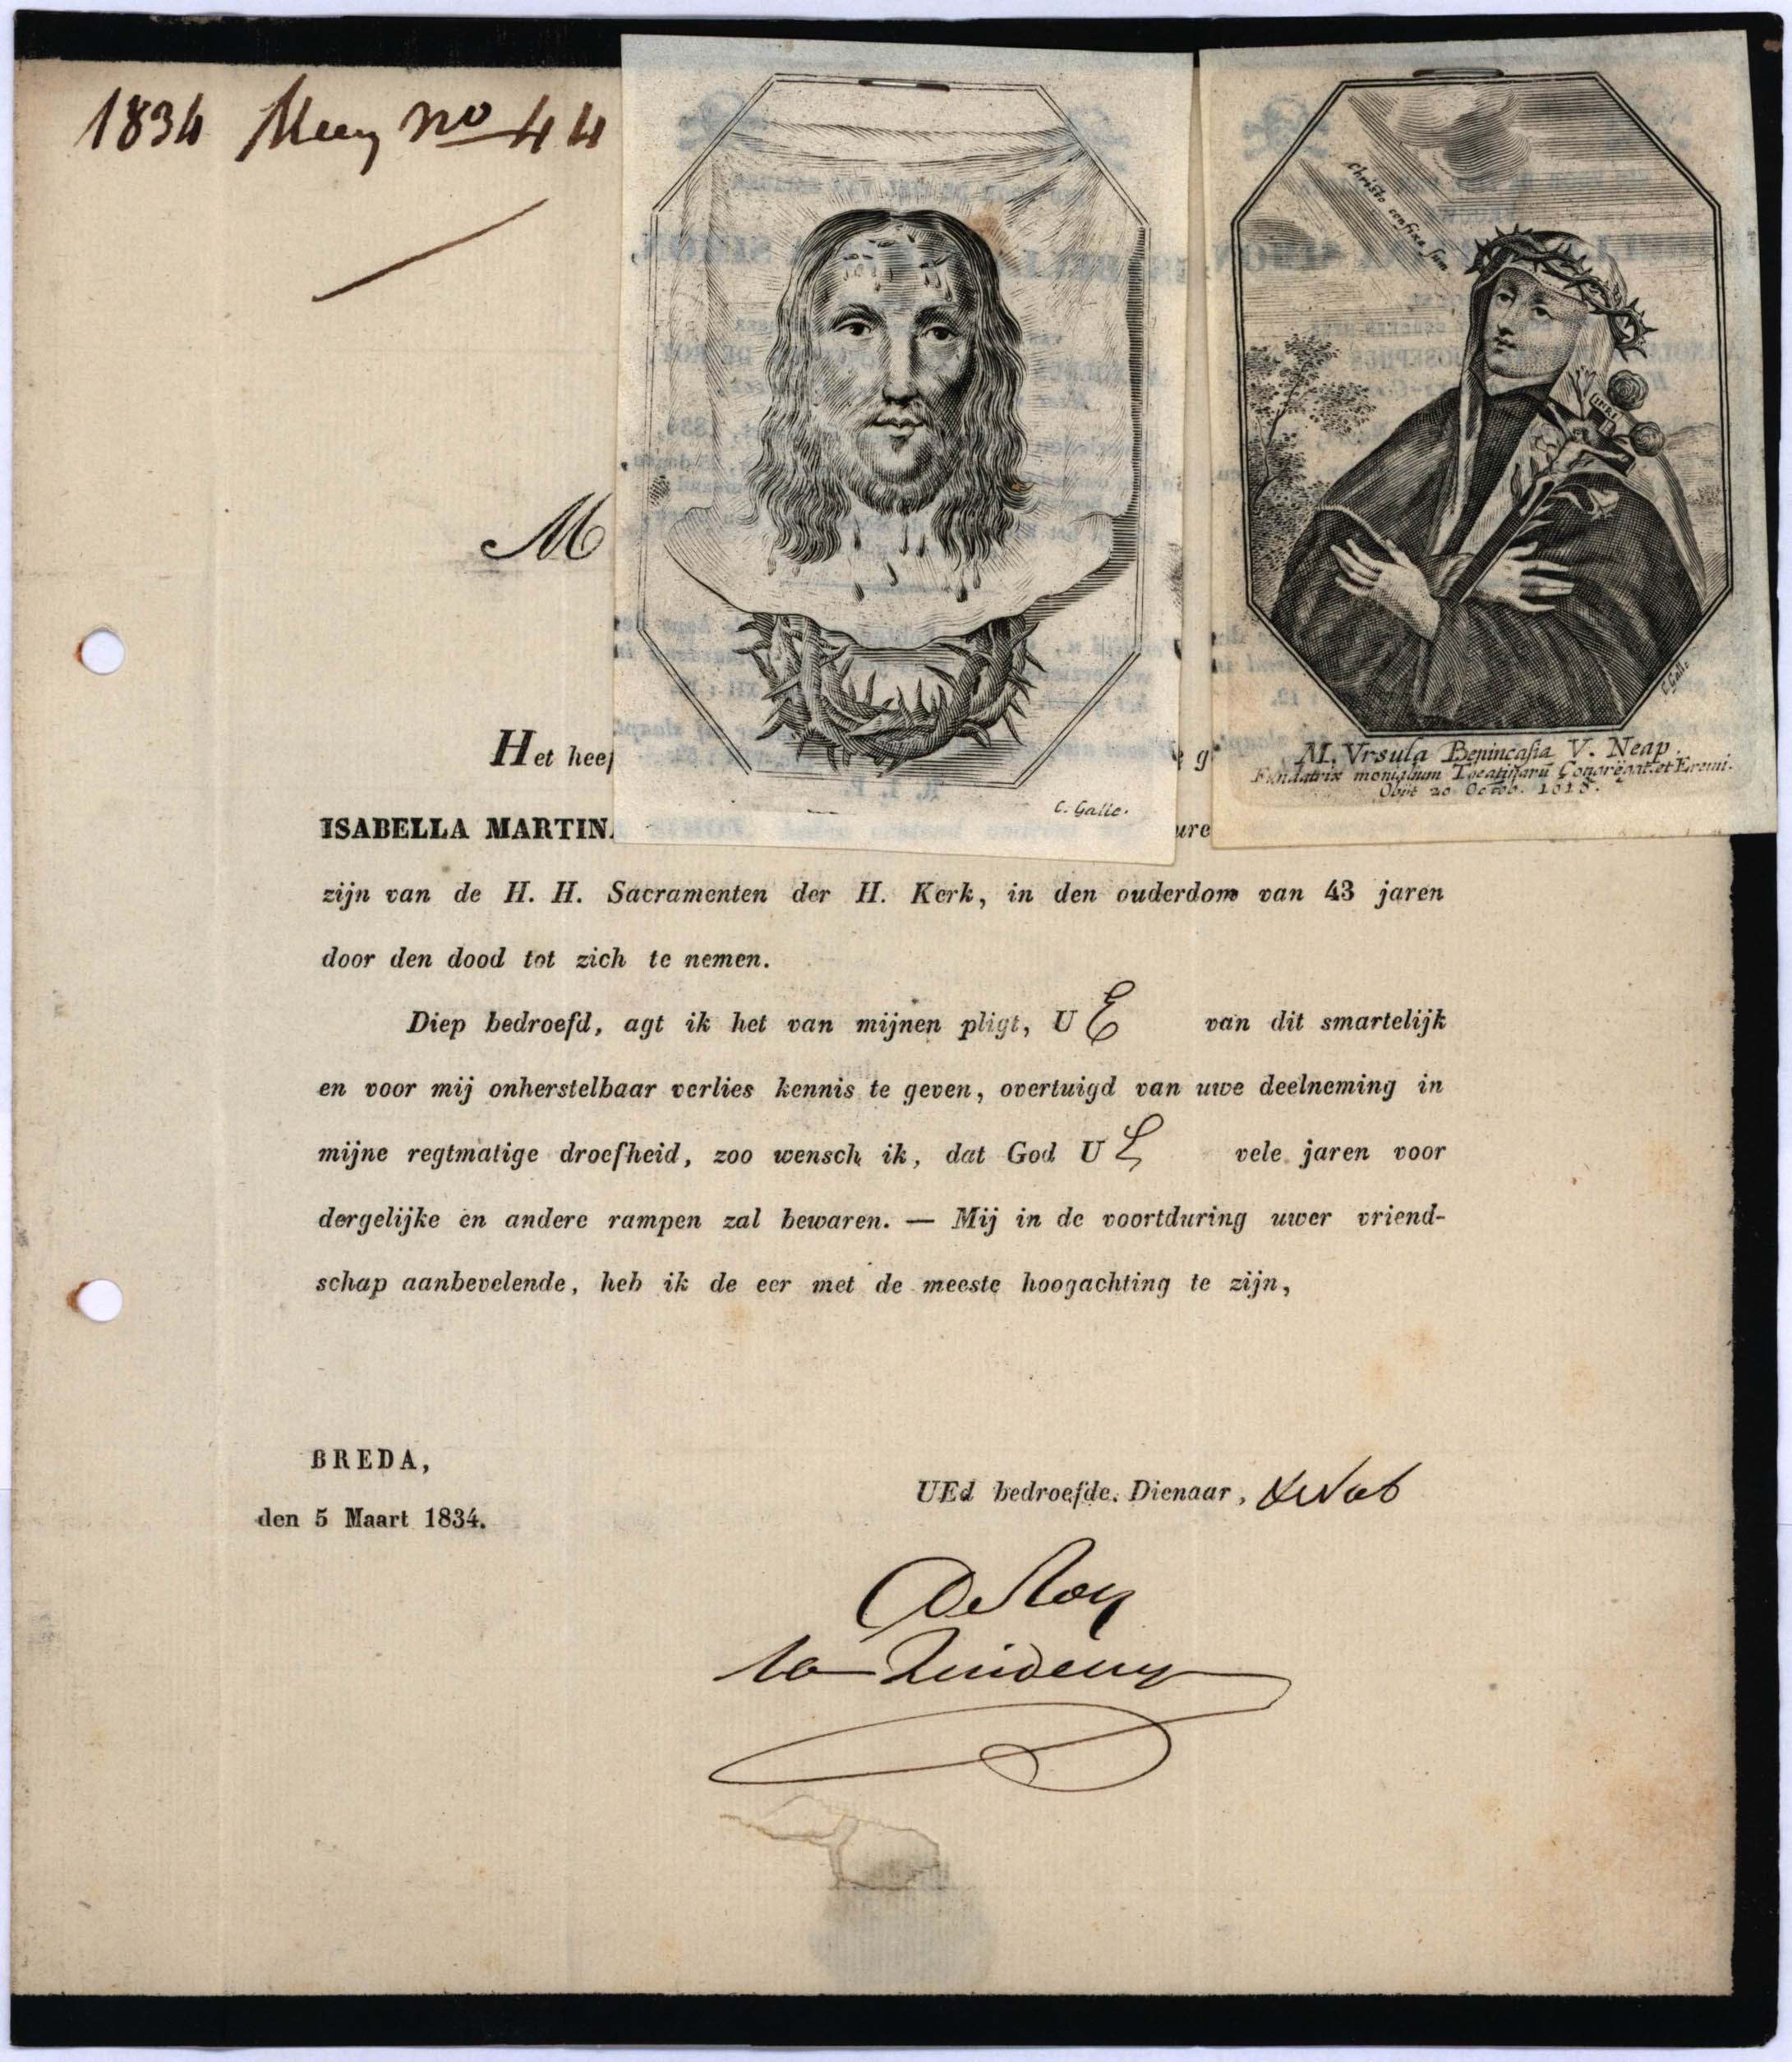 1834 Meey no 44
M
Het heef
e g
ISABELLA MARTIN
ure
zijn van de H. H. Sacramenten der H. Kerk, in den ouderdom van 43 jaren
door den dood tot zich te nemen.
Diep bedroefd, agt ik het van mijnen pligt, U E van dit smartelijk
en voor mij onherstelbaar verlies kennis te geven, overtuigd van uwe deelneming in
mijne regtmatige droefheid, zoo wensch ik, dat God U E vele jaren voor
dergelijke en andere rampen zal bewaren. — Mij in de voortduring uwer vriend-
schap aanbevelende, heb ik de eer met de meeste hoogachting te zijn,
BREDA,
den 5 Maart 1834.
UEd bedroefde Dienaar,
DeRoy
C. Galle.
Christo confixa sum
INRI
C. Galle
M. Vrsula Benincasia V. Neap.
Fundatrix monialium Theatinarũ Congregat. et Eremi.
Obijt 20 Octob. 1618.